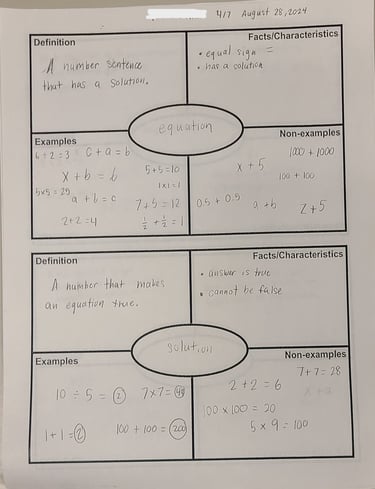 4/7 August 28, 2024
Definition
A number sentence
that has a solution.
Facts/Characteristics
• equal sign =
• has a solution
equation
Examples
6÷2=3 C+a=b
x+b=6
5+5=10
1x1=1
5x5=25
a+b=c
7+5=12
2+2=4
1/2+1/2=1
Non-examples
1000+1000
x+5
100+100
0.5+0.5
a+b
z+5
Definition
A number that makes
an equation true.
Facts/Characteristics
• answer is true
• cannot be false
solution
Examples
10÷5=2
7x7=49
1+1=2
100+100=200
Non-examples
7+7=28
2+2=6
100x100=20
5x9=100